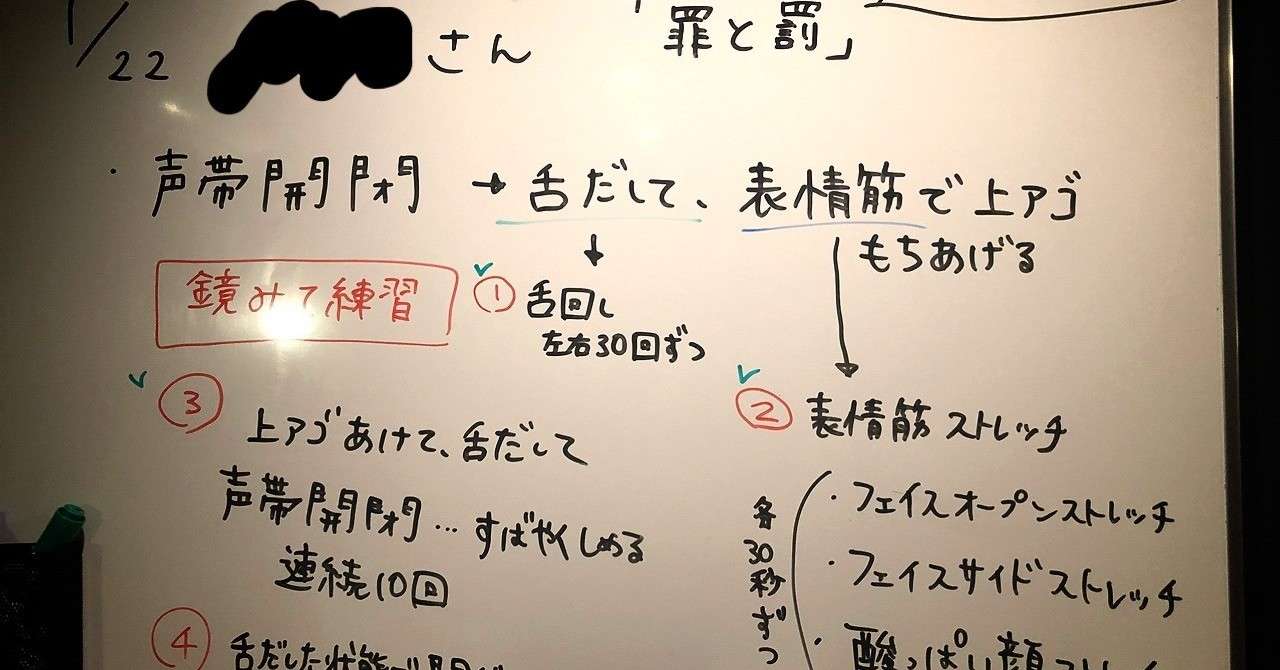 1/22 さん 「罪と罰」
・声帯開閉 → 舌だして、表情筋で上アゴ
もちあげる
鏡みて練習
① 舌回し
左右30回ずつ
② 表情筋ストレッチ
各30秒ずつ
・フェイスオープンストレッチ
・フェイスサイドストレッチ
・酸っぱい顔ストレッチ
③ 上アゴあけて、舌だして
声帯開閉…すばやくしめる
連続10回
④ 舌だした状態で